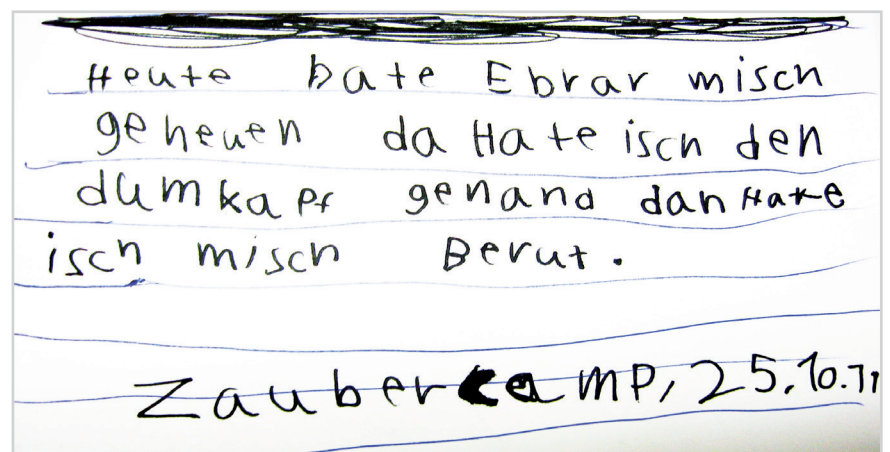 Heute bate Ebrar misch
geheuen da Hate isch den
dumkapf genand dan Hate
isch misch Berut.
Zaubercamp, 25.10.11